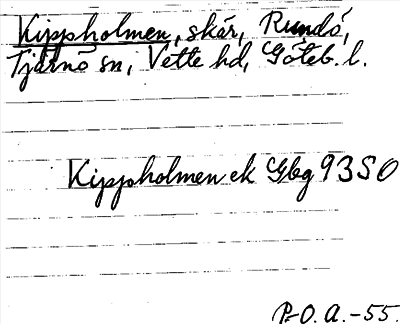 Kippholmen, skär, Rundö,
Tjärnö sn, Vette hd, Göteb. l.
Kippholmen ek Gbg 93SO
P-O. A. -55.